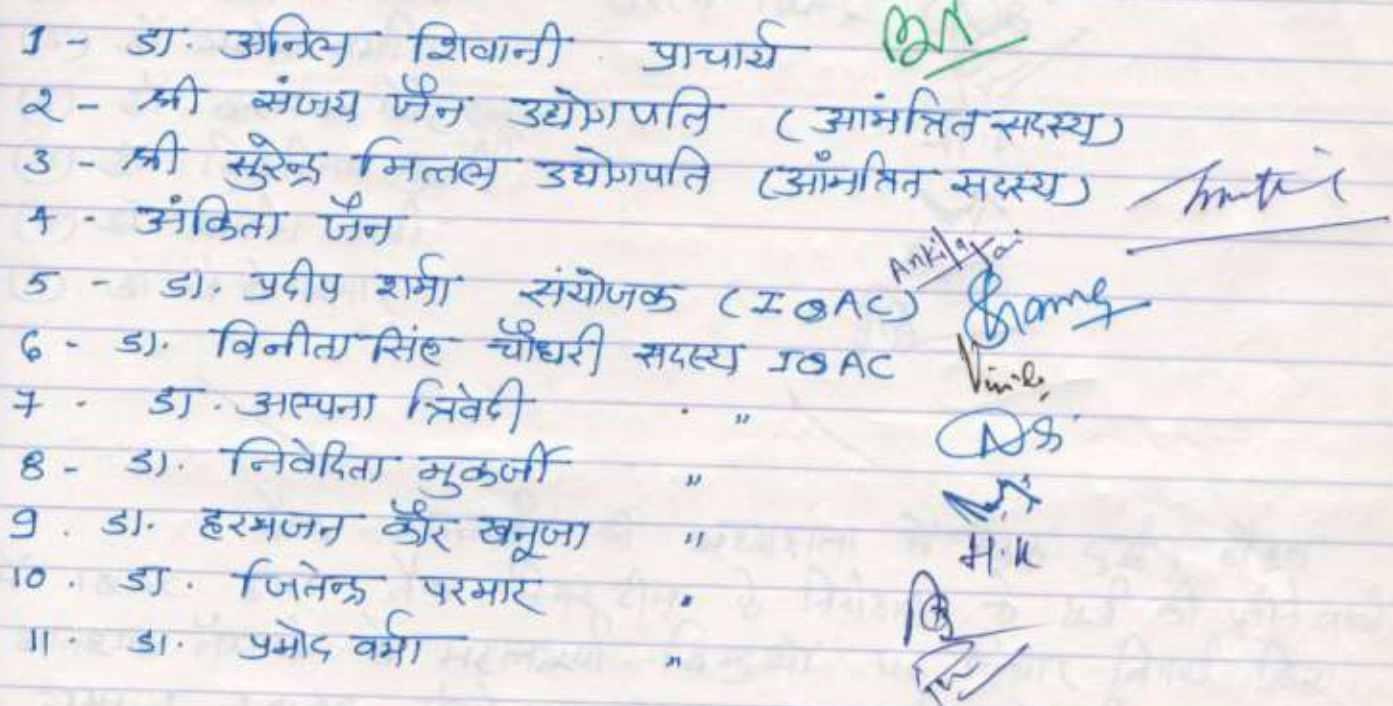 1 - डा. अनिल शिवानी प्राचार्य
2 - श्री संजय जैन उद्योगपति (आमंत्रित सदस्य)
3 - श्री सुरेन्द्र मित्तल उद्योगपति (आंमत्रित सदस्य)
4 - अंकिता जैन
Ankita Jai
5 - डा. प्रदीप शर्मा संयोजक (IQAC)
6 - डा. विनीता सिंह चौधरी सदस्य IQAC
7 - डा. अल्पना त्रिवेदी "
8 - डा. निवेदिता मुकर्जी "
9 . डा. हरभजन कौर खनूजा "
H.K
10 . डा. जितेन्द्र परमार "
11 . डा. प्रमोद वर्मा "